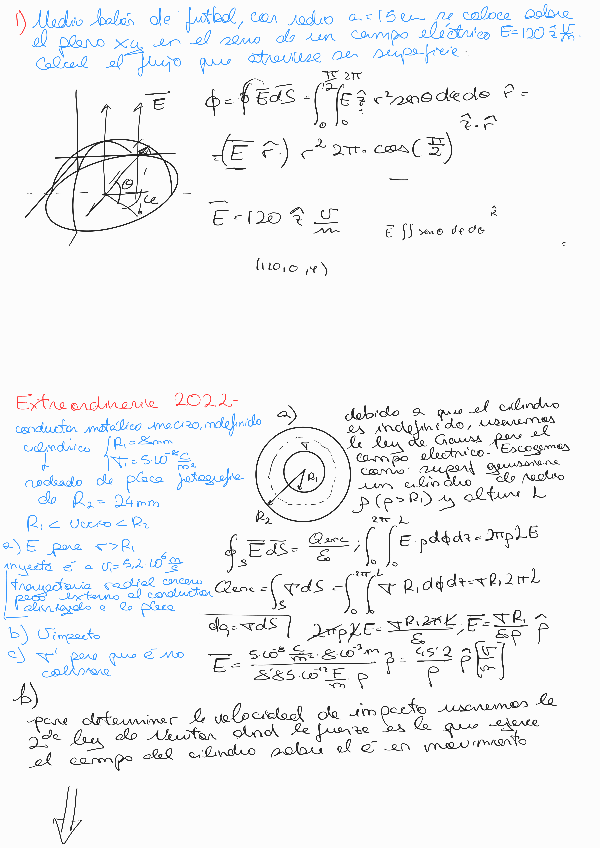 1) Medio balón de futbol, con radio a = 15 cm se coloca sobre
el plano xy en el seno de un campo eléctrico E=120 ẑ V/m
Calcul el flujo que atraviesa ser superficie.
E
ϕ = ∮ E dS = ∫₀^{π/2} ∫₀^{2π} E ẑ r² senθ dθ dϕ r̂ =
ẑ · r̂
= (E r̂) r² 2π · cos(π/2)
θ
φ
E = 120 ẑ V/m
E ∬ senθ dθ dϕ
Extraordinaria 2022-
conductor metálico macizo, indefinido
cilíndrico { R₁ = 8mm
rodeado de placa fotografía
de R₂ = 24mm
R₁ < vacío < R₂
a) E para r > R₁
inyecta é a v = 5,2 10⁶ m/s
trayectoria radial
pero externo al conductor
a la placa
b) v impacto
c) σ' para que é no
a)
R₁
R₂
debido a que el cilindro
es indefinido, usaremos
la ley de Gauss para el
campo electrico. Escogemos
como superf gaussiana
un cilindro de radio
ρ (ρ > R₁) y altura L
∮_S E dS = Qenc/ε ; ∫₀^{2π} ∫₀^L E · ρ dϕ dz = 2πρLE
Qenc = ∫_S σ dS = ∫₀^{2π} ∫₀^L σ R₁ dϕ dz = σ R₁ 2πL
dq = σ dS
2πρLE = σ R₁ 2πL / ε , E = σ R₁ / ερ ρ̂
E = 5·10⁻⁸ C/m² · 8·10⁻³ m / 8'85·10⁻¹² F/m ρ ρ̂ = 45'2 / ρ ρ̂ [V/m]
b)
para determinar la velocidad de impacto usaremos la
2da ley de Newton dnd la fuerza es la que ejerce
el campo del cilindro sobre el é en movimiento